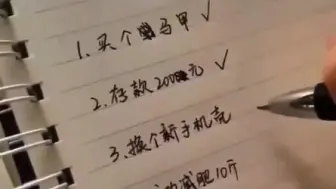 1.买个马甲✓
2.存款2000元✓
3.换个新手机壳
减肥10斤